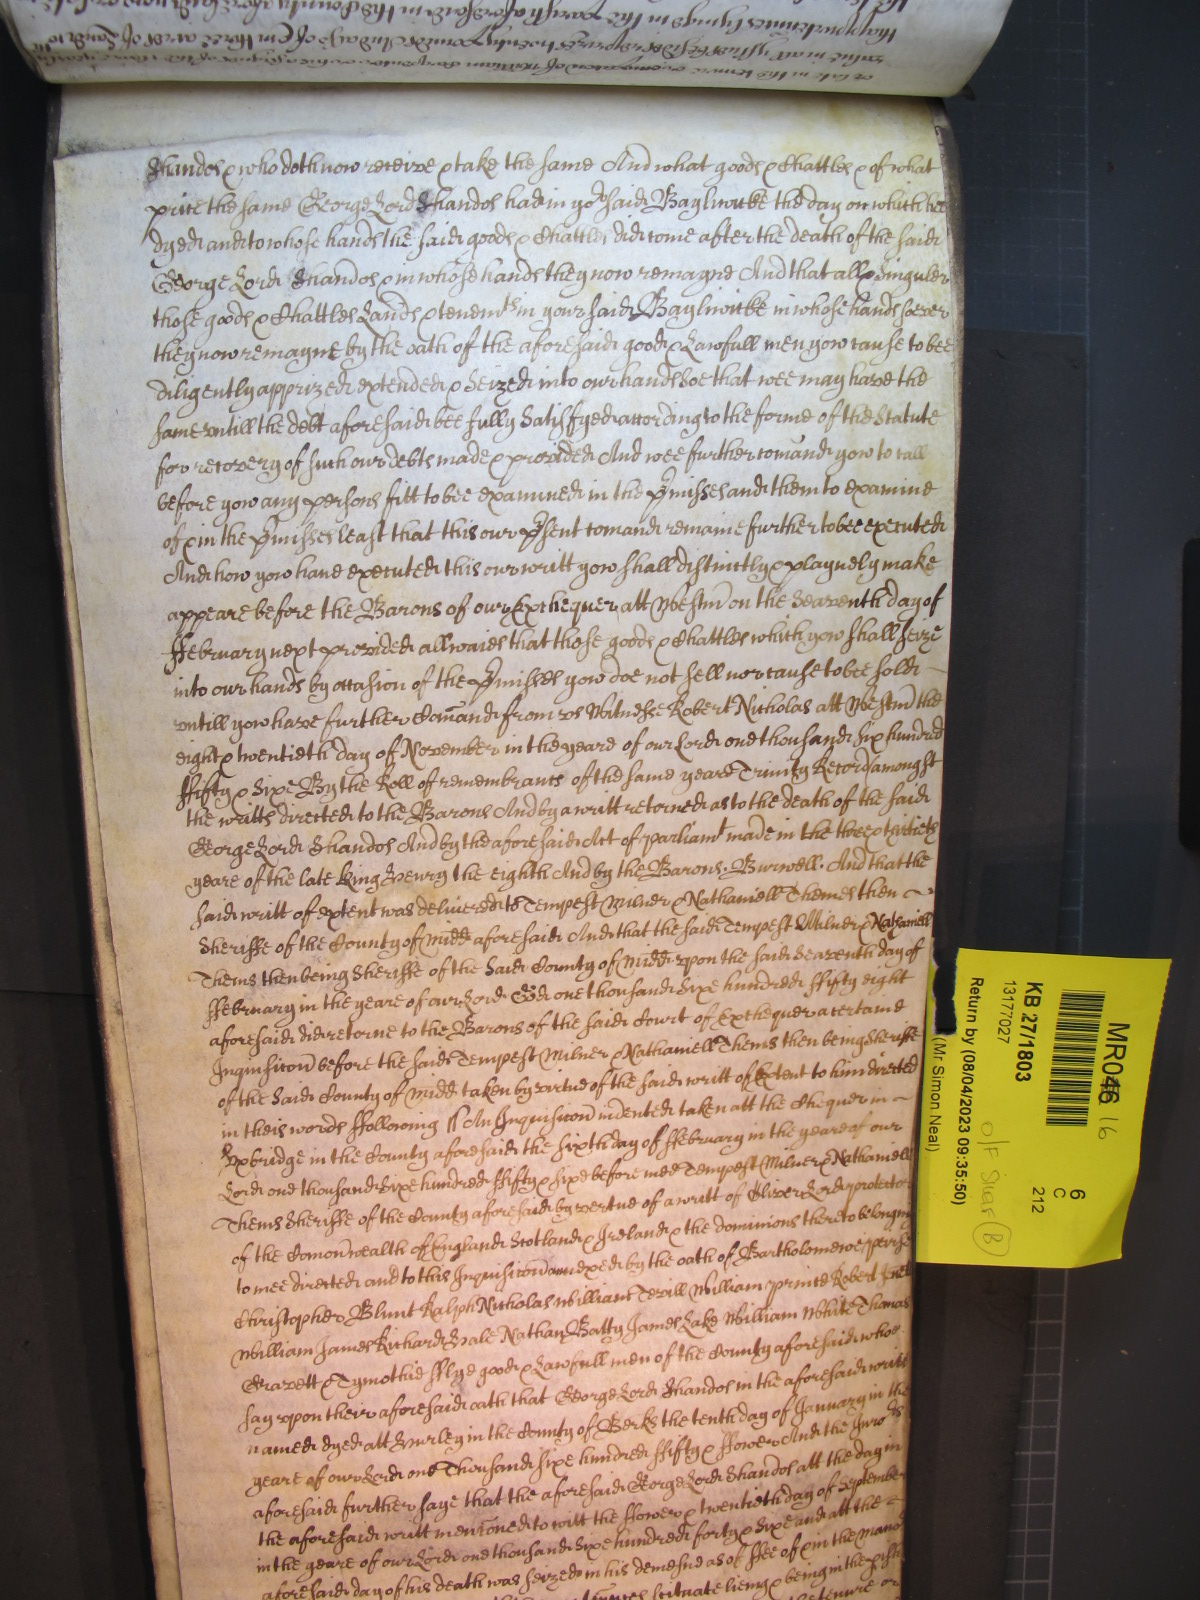 Shandos & who doth now receive & take the same And what goods & Chattles & of what
price the same George Lord Shandos had in yor said Bayliwicke the day on which hee
dyed and to whose hands the said goods & Chattles did come after the death of the said
George Lord Shandos & in whose hands they now remayne And that all & singuler
those goods & Chattles Lands & tenemts in your said Bayliwicke in whose hands soever
they now remayne by the oath of the aforesaid good & Lawfull men yow cause to bee
diligently apprized extended & Seized into our hands Soe that wee may have the
same untill the debt aforesaid bee fully Satisfyed according to the forme of the Statute
for recovery of such our debts made & provided And wee further comand yow to call
before yow any persons fitt to bee examined in the pmisses and them to examine
of & in the pmisses least that this our psent comand remaine further to bee executed
And how yow have executed this our writt yow shall distinctly & playnely make
appeare before the Barons of our Exchequer att Westm on the Seaventh day of
ffebruary next provided allwaies that those goods & Chattles which yow shall seize
into our hands by occasion of the pmisses yow doe not sell nor cause to bee sold
untill yow have further Comand from us Witnesse Robert Nicholas att Westm the
eight & twentieth day of November in the yeare of our Lord one thousand Six hundred
ffifty & Sixe By the Roll of remembrance of the same yeare Trinity Record amongst
the writts directed to the Barons And by a writt retorned as to the death of the said
George Lord Shandos And by the aforesaid Act of parliamt made in the three & thirtieth
yeare of the late King Henry the eighth And by the Barons. Burwell. And that the
said writt of extent was delivered to Tempest Milner & Nathaniell Themes then
Sheriffe of the County of Midd aforesaid And that the said Tempest Milner & Nathaniell
Thems then being Sheriffe of the Said County of Midd upon the said Seaventh day of
ffebruary in the yeare of our Lord God one thousand Sixe hundred ffifty eight
aforesaid did retorne to the Barons of the said Court of Exchequer a certaine
Inquisicon before the said Tempest Milner & Nathaniell Thems then being Sheriffe
of the Said County of Midd taken by virtue of the said writt of Extent to him directed
in theis words ffollowing ss An Inquisicon indented taken att the Chequer in
Uxbridge in the County aforesaid the sixth day of ffebruary in the yeare of our
Lord one thousand Sixe hundred ffifty & sixe before mee Tempest Milner & Nathaniell
Thems Sheriffe of the County aforesaid by vertue of a writt of Oliver Lord protector
of the Comonwealth of England Scotland & Ireland & the dominions thereto belonging
to mee directed and to this Inquisicon annexed by the oath of Bartholomewe
Christopher Blunt Ralph Nicholas William Terill William prince Robert
William James Richard Hale Nathan Batty James Lake William White Thomas
Gravett & Tymothie fflye good & Lawfull men of the County aforesaid whoe
say upon their aforesaid oath that George Lord Shandos in the aforesaid writt
named dyed att Hurley in the County of Berks the tenth day of January in the
yeare of our Lord one Thousand sixe hundred ffifty & ffower And the Jurors
aforesaid further saye that the aforesaid George Lord Shandos att the day in
the aforesaid writt menconed to witt the ffower & twentieth day of September
in the yeare of our Lord one thousand Sixe hundred forty & Sixe and att the
aforesaid day of his death was seized in his demesne as of ffee of & in the Manor
scituate lieing & being in the
tenure or
MR046
16
KB 27/1803
13177027
Return by (08/04/2023 09:35:50)
(Mr Simon Neal)
6
C
212
O/F
B